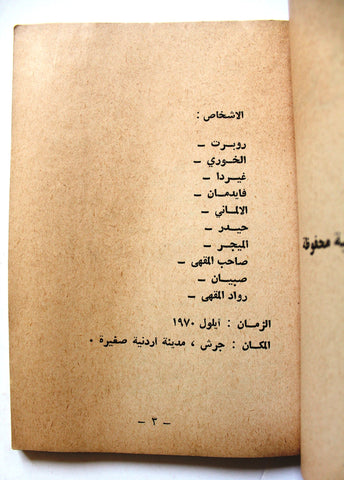 الاشخاص :
روبرت –
الخوري –
غيردا –
فايدمان –
الالماني –
حيدر –
الميجر –
صاحب المقهى –
صبيان –
رواد المقهى –
الزمان : ايلول ١٩٧٠
المكان : جرش ، مدينة اردنية صغيرة .
– ٣ –
محفوظة